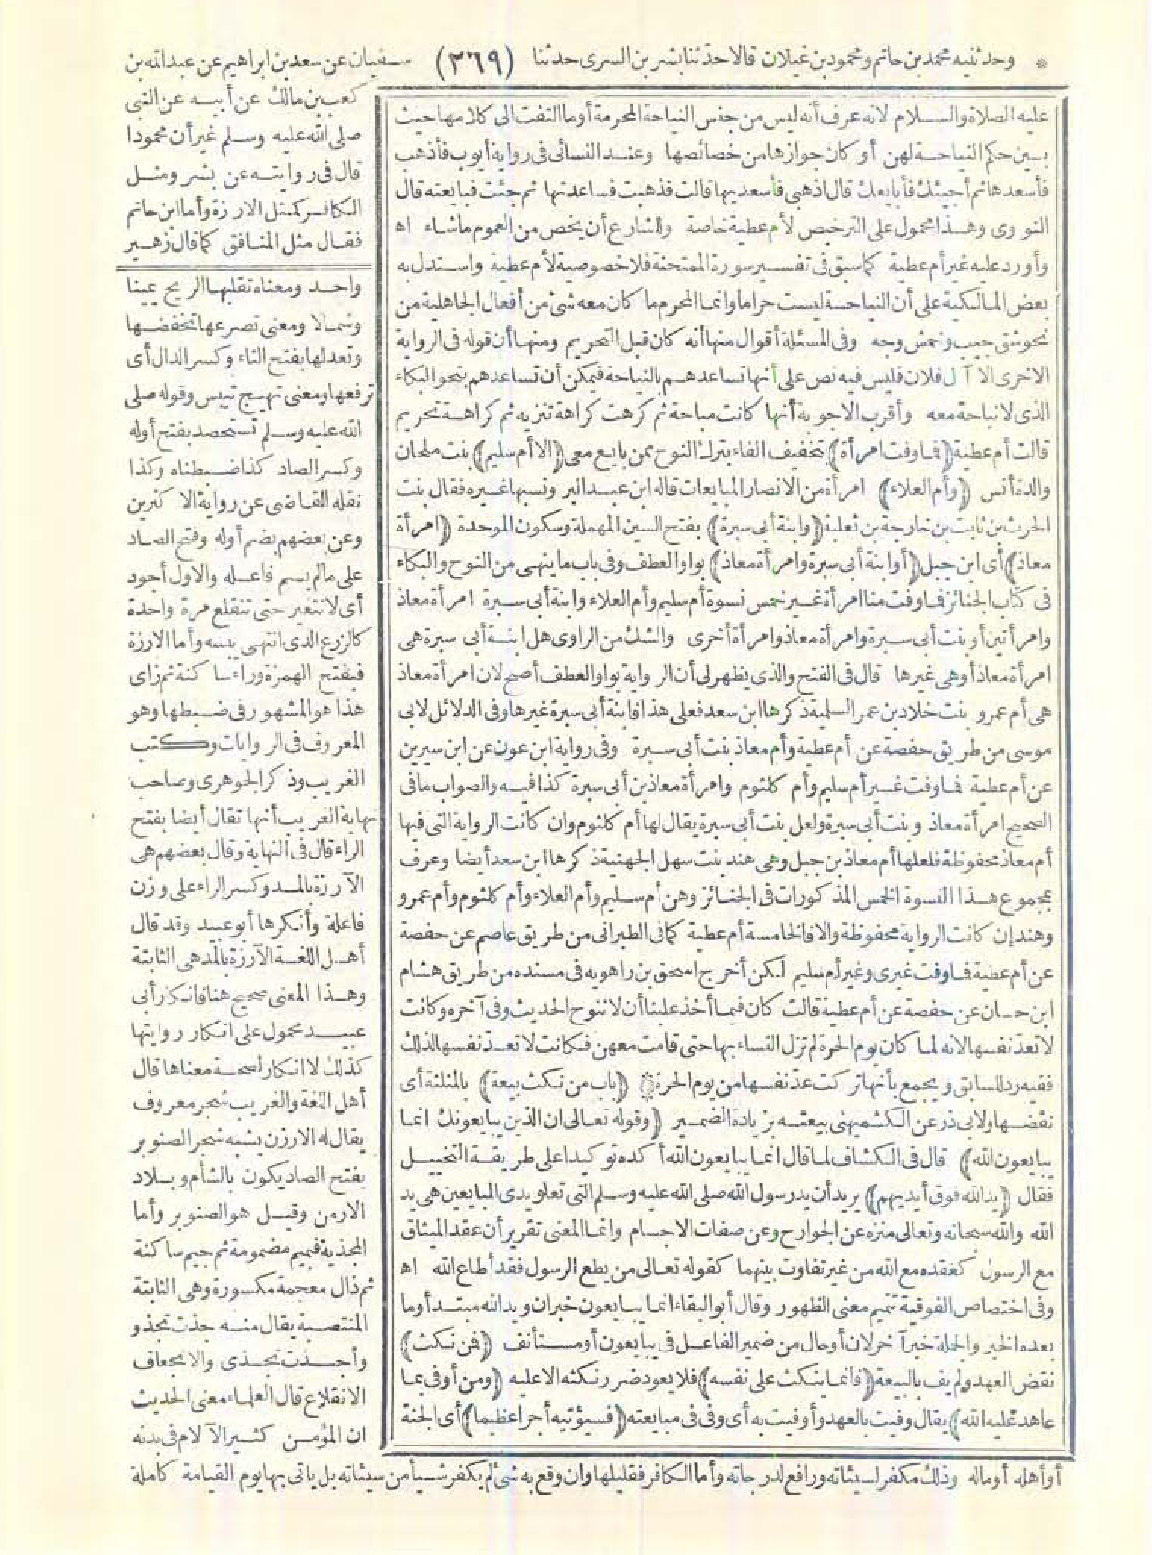 * وحدثنيه محمد بن حاتم ومحمود بن غيلان قالا حدثنا بشر بن السرى حدثنا (٢٦٩) سفيان عن سعد بن ابراهيم عن عبدالله بن
كعب بن مالك عن أبيه عن النبى
صلى الله عليه وسلم غير أن محمودا
قال فى روايته عن بشر ومثل
الكافر كمثل الارزة وأما ابن حاتم
فقال مثل المنافق كما قال زهير
عليه الصلاة والسلام لانه عرف أنه ليس من جنس النياحة المحرمة أو ما التفت الى كلامها حيث
بين حكم النياحة لهن أو كان جوازها من خصائصها وعند النسائى فى رواية أيوب فأذهب
فأسعدها ثم أجيئك فأبايعك قال اذهبى فأسعديها قالت فذهبت فساعدتها ثم جئت فبايعته قال
النووى وهذا محمول على الترخيص لأم عطية خاصة وللشارع أن يخص من العموم ماشاء اه
وأورد عليه غير أم عطية كما سبق فى تفسير سورة الممتحنة فلا خصوصية لأم عطية واستدل به
بعض المالكية على أن النياحة ليست حراما وانما المحرم ما كان معه شئ من أفعال الجاهلية من
نحو شق جيب وخمش وجه وفى المسئلة أقوال منها أنه كان قبل التحريم ومنها أن قوله فى الرواية
الاخرى الا آل فلان فليس فيه نص على أنها تساعدهم بالنياحة فيمكن أن تساعدهم بنحو البكاء
الذى لا نياحة معه وأقرب الاجوبة أنها كانت مباحة ثم كرهت كراهة تنزيه ثم كراهة تحريم
قالت أم عطية (فما وفت امرأة) بتخفيف الفاء بترك النوح ممن بايع معى (الا أم سليم) بنت ملحان
والدة أنس (وأم العلاء) امرأة من الانصار المبايعات قاله ابن عبد البر ونسبها غيره فقال بنت
الحرث بن ثابت بن خارجة بن ثعلبة (وابنة أبى سبرة) بفتح السين المهملة وسكون الموحدة (امرأة
معاذ) أى ابن جبل (أو ابنة أبى سبرة وامرأة معاذ) بواو العطف وفى باب ما ينهى من النوح والبكاء
فى كتاب الجنائز فما وفت منا امرأة غير خمس نسوة أم سليم وأم العلاء وابنة أبى سبرة امرأة معاذ
وامرأتين أو بنت أبى سبرة وامرأة معاذ وامرأة أخرى والشك من الراوى هل ابنة أبى سبرة هى
امرأة معاذ أو هى غيرها قال فى الفتح والذى يظهر لى أن الرواية بواو العطف أصح لان امرأة معاذ
هى أم عمرو بنت خلاد بن عمر السلمية ذكرها ابن سعد فعلى هذا فابنة أبى سبرة غيرها وفى الدلائل لابى
موسى من طريق حفصة عن أم عطية وأم معاذ بنت أبى سبرة وفى رواية ابن عون عن ابن سيرين
عن أم عطية فما وفت غير أم سليم وأم كلثوم وامرأة معاذ بن أبى سبرة كذا فيه والصواب ما فى
الصحيح امرأة معاذ وبنت أبى سبرة ولعل بنت أبى سبرة يقال لها أم كلثوم وان كانت الرواية التى فيها
أم معاذ محفوظة فلعلها أم معاذ بن جبل وهى هند بنت سهل الجهنية ذكرها ابن سعد أيضا وعرف
بمجموع هذا النسوة الخمس المذكورات فى الجنائز وهن أم سليم وأم العلاء وأم كلثوم وأم عمرو
وهند إن كانت الرواية محفوظة والا فالخامسة أم عطية كما فى الطبرانى من طريق عاصم عن حفصة
عن أم عطية فما وفت غيرى وغير أم سليم لكن أخرج اسحق بن راهويه فى مسنده من طريق هشام
ابن حسان عن حفصة عن أم عطية قالت كان فيما أخذ علينا أن لا ننوح الحديث وفى آخره وكانت
لا تعد نفسها لانه لما كان يوم الحرة لم تزل النساء بها حتى قامت معهن فكانت لا تعد نفسها لذلك
ففيه رد للسابق ويجمع بأنها تركت عد نفسها من يوم الحرة (باب من نكث بيعة) بالمثلثة أى
نقضها ولابى ذر عن الكشميهنى بيعته بزيادة الضمير (وقوله تعالى ان الذين يبايعونك انما
يبايعون الله) قال فى الكشاف لما قال انما يبايعون الله أكده توكيدا على طريقة التخييل
فقال (يد الله فوق أيديهم) يريد أن يد رسول الله صلى الله عليه وسلم التى تعلو يدى المبايعين هى يد
الله والله سبحانه وتعالى منزه عن الجوارح وعن صفات الاجسام وانما المعنى تقرير أن عقد الميثاق
مع الرسول كعقده مع الله من غير تفاوت بينهما كقوله تعالى من يطع الرسول فقد أطاع الله اه
وفى اختصاص الفوقية تتميم معنى الظهور وقال أبو البقاء انما يبايعون خبر ان ويد الله مبتدأ وما
بعده الخبر والجملة خبر آخر لان أو حال من ضمير الفاعل فى يبايعون أو مستأنف (فمن نكث)
نقض العهد ولم يف بالبيعة (فانما ينكث على نفسه) فلا يعود ضرر نكثه الا عليه (ومن أوفى بما
عاهد عليه الله) يقال وفيت بالعهد وأوفيت به أى وفى فى مبايعته (فسيؤتيه أجرا عظيما) أى الجنة
واحد ومعناه تقلبها الريح يمينا
وشمالا ومعنى تصرعها تخفضها
وتعدلها بفتح التاء وكسر الدال أى
ترفعها ومعنى تهيج تيبس وقوله صلى
الله عليه وسلم تستحصد بفتح أوله
وكسر الصاد كذا ضبطناه وكذا
نقله القاضى عن رواية الاكثرين
وعن بعضهم بضم أوله وفتح الصاد
على ما لم يسم فاعله والاول أجود
أى لا تتغير حتى تنقلع مرة واحدة
كالزرع الذى انتهى يبسه وأما الارزة
فبفتح الهمزة وراء ساكنة ثم زاى
هذا هو المشهور فى ضبطها وهو
المعروف فى الروايات وكتب
الغريب وذكر الجوهرى وصاحب
نهاية الغريب أنها تقال أيضا بفتح
الراء قال فى النهاية وقال بعضهم هى
الآرزة بالمد وكسر الراء على وزن
فاعلة وأنكرها أبو عبيد وقد قال
أهل اللغة الآرزة بالمد هى الثابتة
وهذا المعنى صحيح هنا فانكار أبى
عبيد محمول على انكار روايتها
كذلك لا انكار لصحة معناها قال
أهل اللغة والغريب شجر معروف
يقال له الارزن يشبه شجر الصنوبر
بفتح الصاد يكون بالشأم وبلاد
الارمن وقيل هو الصنوبر وأما
المجذية فبميم مضمومة ثم جيم ساكنة
ثم ذال معجمة مكسورة وهى الثابتة
المنتصبة يقال منه جذت تجذو
وأجذت تجذى والانجعاف
الانقلاع قال العلماء معنى الحديث
ان المؤمن كثير الآلام فى بدنه
أو أهله أو ماله وذلك مكفر لسيئاته ورافع لدرجاته وأما الكافر فقليلها وان وقع به شئ لم يكفر شيأ من سيئاته بل يأتى بها يوم القيامة كاملة